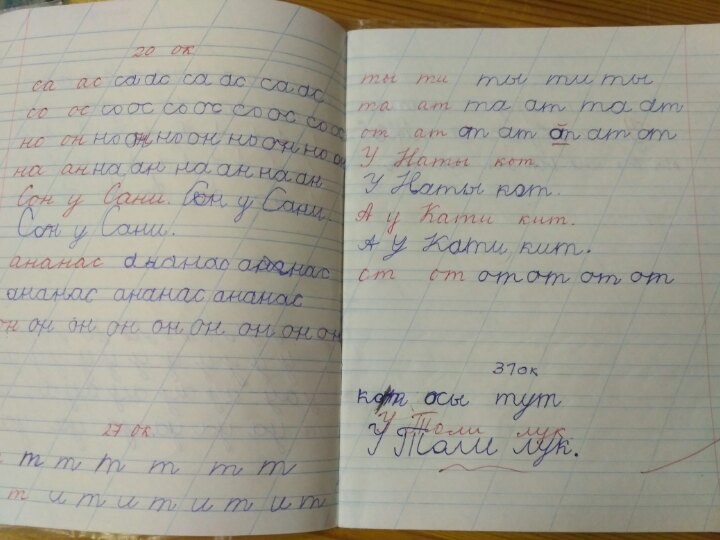 20 ок
са ас са ас са ас са ас
со ос со ос со ос со ос со ос
но он но он но он но он но он
на ан на ан на ан на ан
Сон у Сани. Сон у Сани.
Сон у Сани.
ананас ананас ананас
ананас ананас ананас
он он он он он он он он он
27 ок
т т т т т т
т и т и т и т и т
ты ти ты ти ты
та ат та ат та ат
от ат от ат от ат от
У Наты кот.
У Наты кот.
А у Кати кит.
А у Кати кит.
от от от от от от
31 ок
осы тут
У Толи лук
У Толи лук.